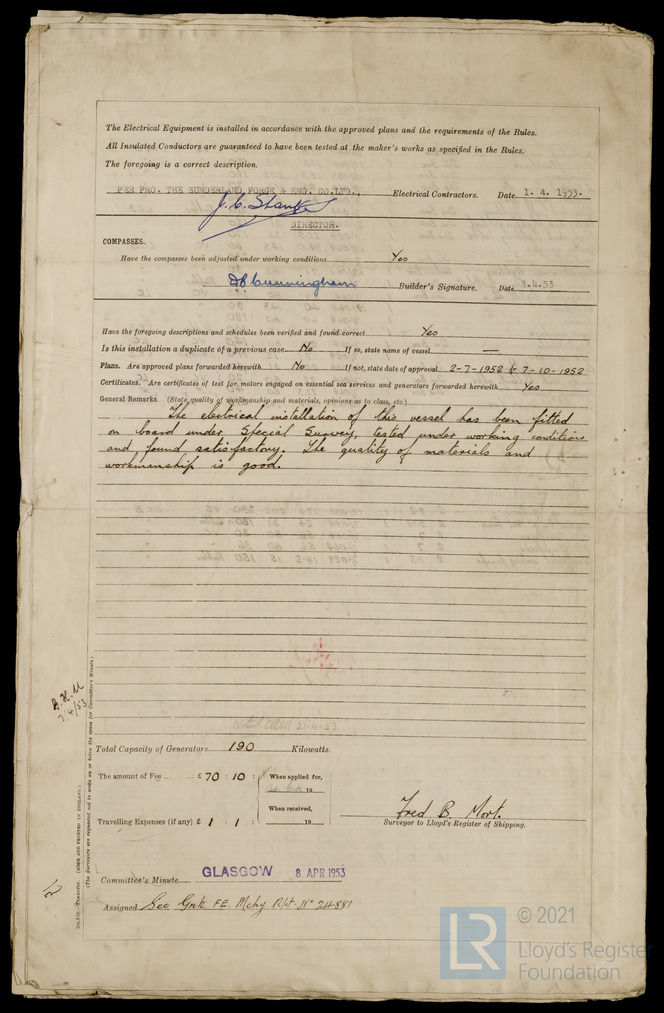 The Electrical Equipment is installed in accordance with the approved plans and the requirements of the Rules.
All Insulated Conductors are guaranteed to have been tested at the maker's works as specified in the Rules.
The foregoing is a correct description.
PER PRO. THE SUNDERLAND FORGE & ENG. CO.LTD., Electrical Contractors. Date 1. 4. 1953.
DIRECTOR.
COMPASSES.
Have the compasses been adjusted under working conditions Yes
D B Cunningham Builder's Signature. Date 3.4.53
Have the foregoing descriptions and schedules been verified and found correct Yes
Is this installation a duplicate of a previous case No If so, state name of vessel —
Plans. Are approved plans forwarded herewith No If not, state date of approval 2-7-1952 & 7-10-1952
Certificates. Are certificates of test for motors engaged on essential sea services and generators forwarded herewith Yes
General Remarks. (State quality of workmanship and materials, opinions as to class, etc.)
The electrical installation of this vessel has been fitted
on board under Special Survey, tested under working conditions
and found satisfactory. The quality of materials and
workmanship is good.
7/4/53
Noted 21-4-53
Total Capacity of Generators 190 Kilowatts.
The amount of Fee ... ... £ 70 : 10 : When applied for,
19
When received,
Travelling Expenses (if any) £ 1 : 1 : 19
Fred B. Mort.
Surveyor to Lloyd's Register of Shipping.
Committee's Minute GLASGOW 8 APR 1953
Assigned See Grk. F.E. Mchy Rpt. No 24881
(MADE AND PRINTED IN ENGLAND.)
(The Surveyors are requested not to write on or below the space for Committee's Minute.)
© 2021
LR Lloyd's Register
Foundation